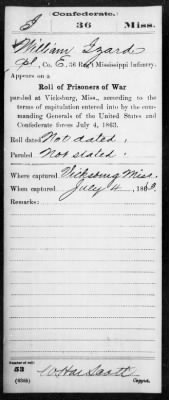 Confederate.
I 36 Miss.
William Izard
Pt, Co. E, 36 Reg't Mississippi Infantry.
Appears on a
Roll of Prisoners of War
paroled at Vicksburg, Miss., according to the
terms of capitulation entered into by the com-
manding Generals of the United States and
Confederate forces July 4, 1863.
Roll dated Not dated.
Paroled Not stated.
Where captured Vicksburg Miss.
When captured July 4, 1863.
Remarks:
Number of roll:
53
Copyist.